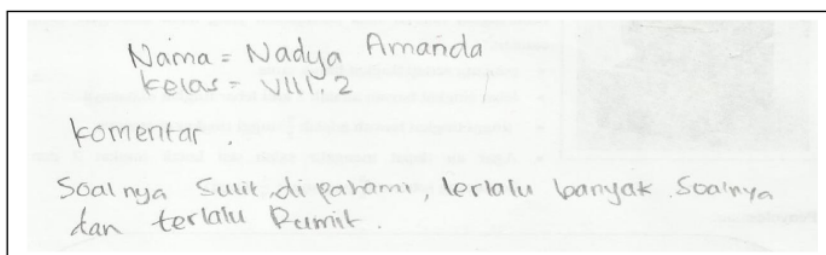 Nama = Nadya Amanda
Kelas = VIII.2
Komentar.
Soalnya Sulit di pahami, terlalu banyak Soalnya
dan terlalu Rumit.